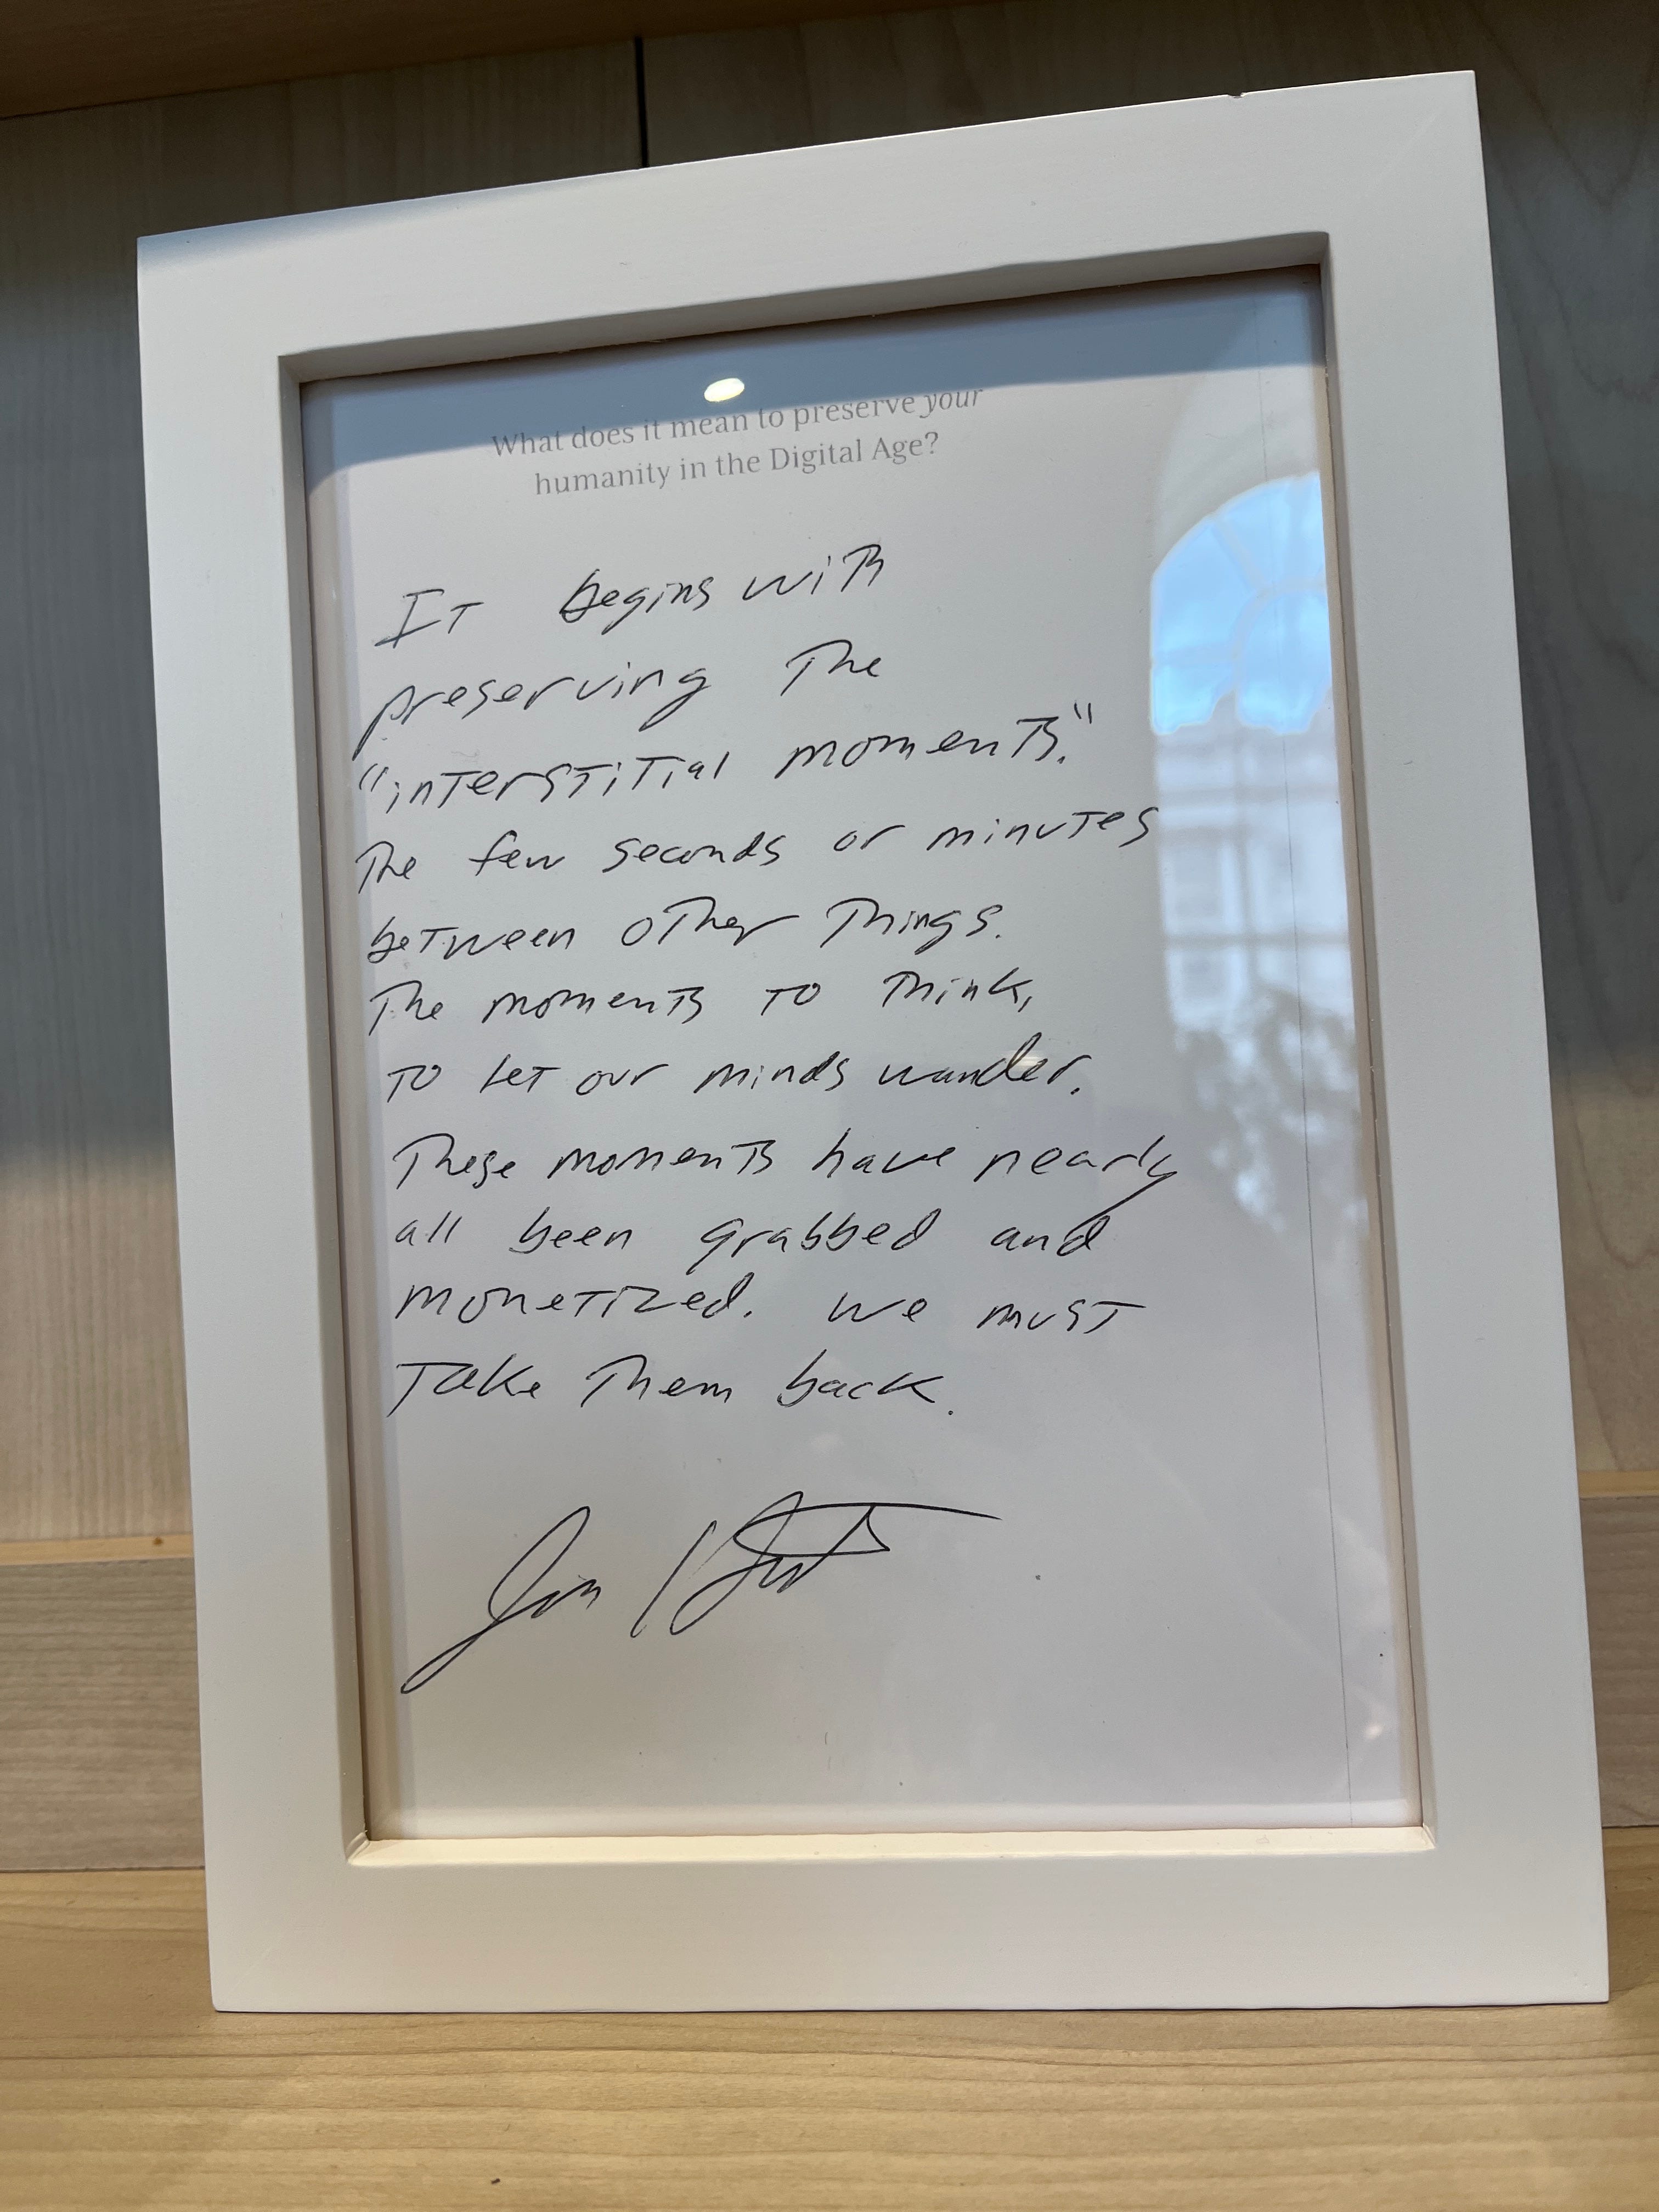 What does it mean to preserve your
humanity in the Digital Age?
It begins with
preserving the
"interstitial moments."
The few seconds or minutes
between other things.
The moments to think,
to let our minds wander.
These moments have nearly
all been grabbed and
monetized. we must
Take them back.
Jon